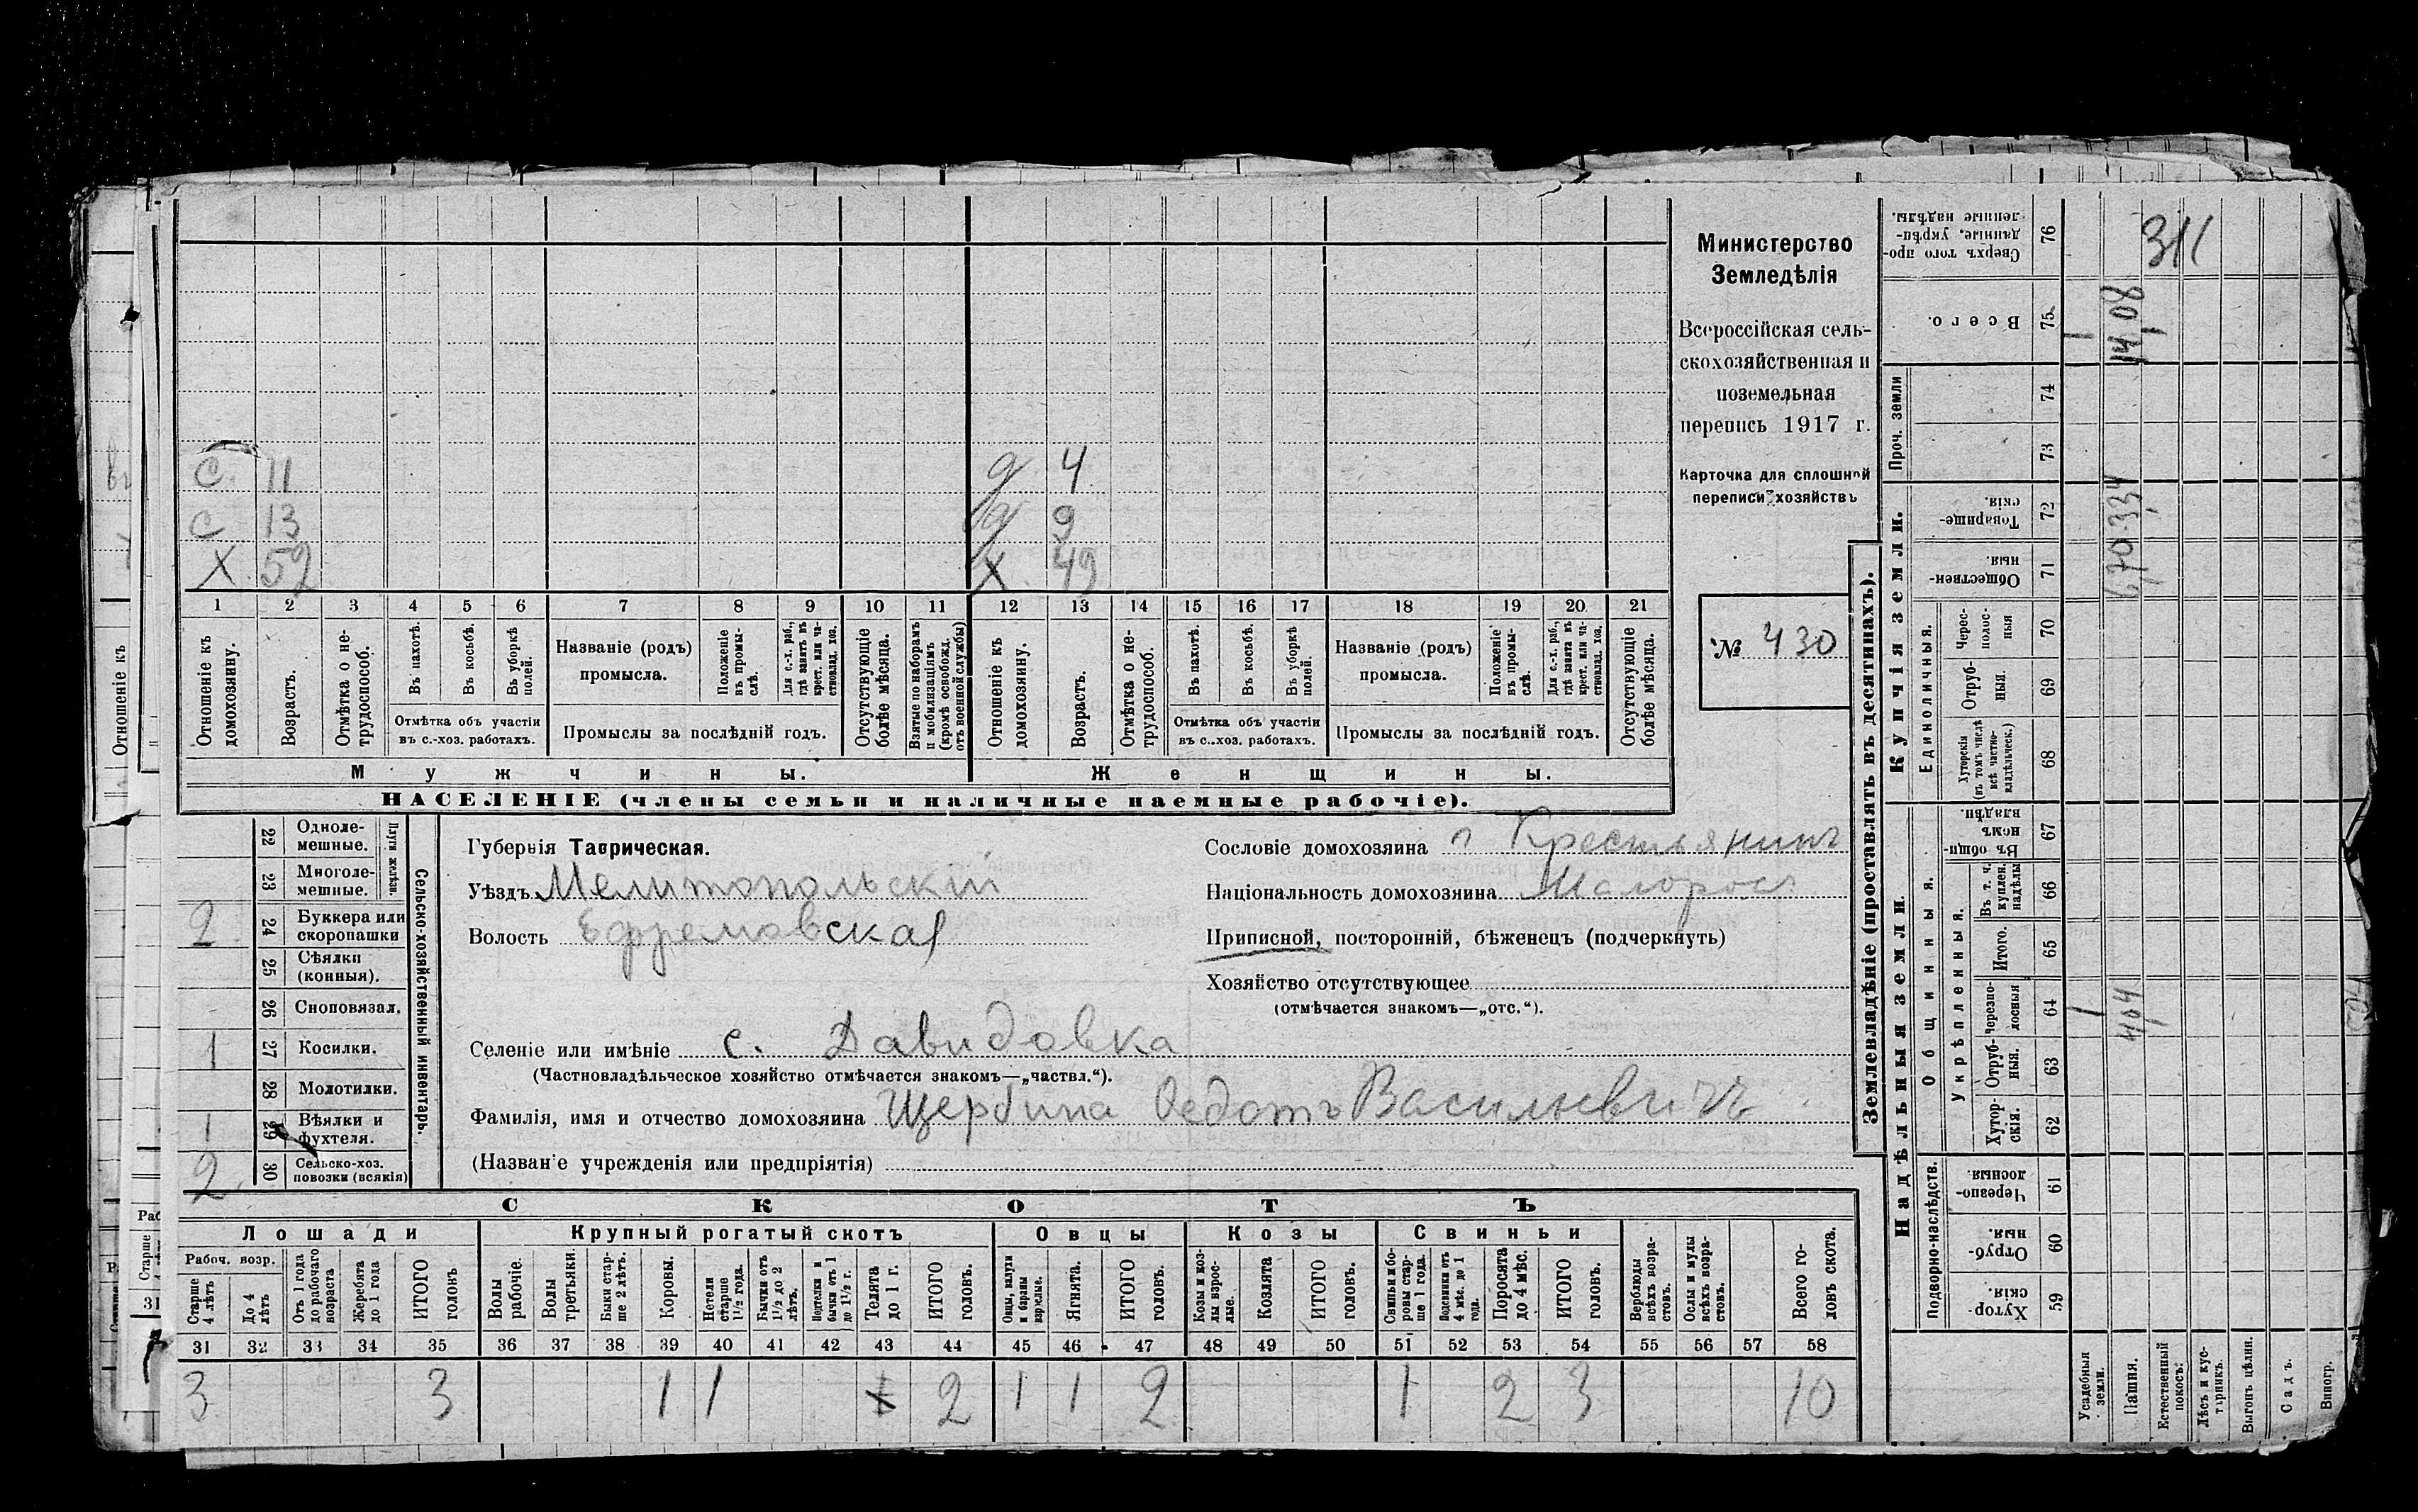 Министерство
Земледѣлія
Всероссійская сель-
скохозяйственная и
поземельная
перепись 1917 г.
Карточка для сплошной
переписи хозяйствъ
№ 430
с 11
с 13
х 52
д 4
д 9
х 49
1 2 3 4 5 6 7 8 9 10 11 12 13 14 15 16 17 18 19 20 21
Отношеніе къ домохозяину.
Возрастъ.
Отмѣтка о не-трудоспособ.
Въ пахотѣ.
Въ косьбѣ.
Въ уборкѣ полей.
Отмѣтка объ участіи
въ с.-хоз. работахъ.
Названіе (родъ)
промысла.
Положеніе въ промы-слѣ.
Для с.-х. раб., гдѣ занятъ въ крест. или ча-стновлад. хоз.
Промыслы за послѣдній годъ.
Отсутствующіе болѣе мѣсяца.
Взятые по наборамъ и мобилизаціямъ (кромѣ освобожд. отъ военной службы)
Отношеніе къ домохозяину.
Возрастъ.
Отмѣтка о не-трудоспособ.
Въ пахотѣ.
Въ косьбѣ.
Въ уборкѣ полей.
Отмѣтка объ участіи
въ с.-хоз. работахъ.
Названіе (родъ)
промысла.
Положеніе въ промы-слѣ.
Для с.-х. раб., гдѣ занята въ крест. или ча-стновлад. хоз.
Промыслы за послѣдній годъ.
Отсутствующіе болѣе мѣсяца.
Мужчины.
Женщины.
НАСЕЛЕНІЕ (члены семьи и наличные наемные рабочіе).
Сельско-хозяйственный инвентарь.
Плуги желѣзн.
22 Одноле-мешные.
23 Многоле-мешные.
2 24 Буккера или скоропашки
25 Сѣялки (конныя).
26 Сноповязал.
1 27 Косилки.
28 Молотилки.
1 29 Вѣялки и фухтеля.
2 30 Сельско-хоз. повозки (всякія)
Губернія Таврическая.
Уѣздъ Мелитопольскій
Волость Ефремовская
Селеніе или имѣніе с. Давидовка
(Частновладѣльческое хозяйство отмѣчается знакомъ—„частвл.“).
Фамилія, имя и отчество домохозяина Щербина Федотъ Васильевичъ
(Названіе учрежденія или предпріятія)
Сословіе домохозяина Крестьянинъ
Національность домохозяина Малоросъ
Приписной, посторонній, бѣженецъ (подчеркнуть)
Хозяйство отсутствующее
(отмѣчается знакомъ—„отс.“).
СКОТЪ
Лошади
Крупный рогатый скотъ
Овцы
Козы
Свиньи
Рабоч. возр.
Старше 4 лѣтъ
До 4 лѣтъ
Отъ 1 года до рабочаго возраста
Жеребята до 1 года
ИТОГО головъ
Волы рабочіе.
Волы третьяки.
Быки стар-ше 2 лѣтъ.
Коровы.
Нетели старше 1½ года.
Бычки отъ 1½ до 2 лѣтъ.
Нетелки и бычки отъ 1 до 1½ г.
Телята до 1 г.
ИТОГО головъ.
Овцы, валухи и бараны взрослые.
Ягнята.
ИТОГО головъ.
Козы и коз-лы взрос-лые.
Козлята
ИТОГО головъ.
Свиньи и бо-ровы стар-ше 1 года.
Подсвинки отъ 4 мѣс. до 1 года.
Поросята до 4 мѣс.
ИТОГО головъ.
Верблюды всѣхъ возра-стовъ.
Ослы и мулы всѣхъ возра-стовъ.
Всего го-ловъ скота.
31 32 33 34 35 36 37 38 39 40 41 42 43 44 45 46 47 48 49 50 51 52 53 54 55 56 57 58
3 3 1 1 2 1 1 2 1 2 3 10
Землевладѣніе (проставлять въ десятинахъ).
Надѣльныя земли.
Купчія земли.
Проч. земли
Подворно-наслѣдств.
Общинныя.
Укрѣпленныя.
Единоличныя.
Хутор-скія. 59
Отруб-ныя. 60
Черезпо-лосныя. 61
Хутор-скія. 62
Отруб-ныя. 63
Черезпо-лосныя 64
Итого. 65
Въ т. ч. куплен. надѣлы 66
Въ общи-номъ владѣн. 67
Хуторскія (въ томъ числѣ всѣ частно-владѣльческ.) 68
Отруб-ныя. 69
Черес-полос-ныя 70
Обществен-ныя. 71
Товарище-скія. 72
73
74
Всего. 75
Сверхъ того про-данные, укрѣп-ленные надѣлы. 76
Усадебныя земли.
Пашня.
Естественный покосъ.
Лѣсъ и кус-тарникъ.
Выгонъ цѣлин.
Садъ.
Виногр.
404
14,08
311
Отношеніе къ
Старше
31